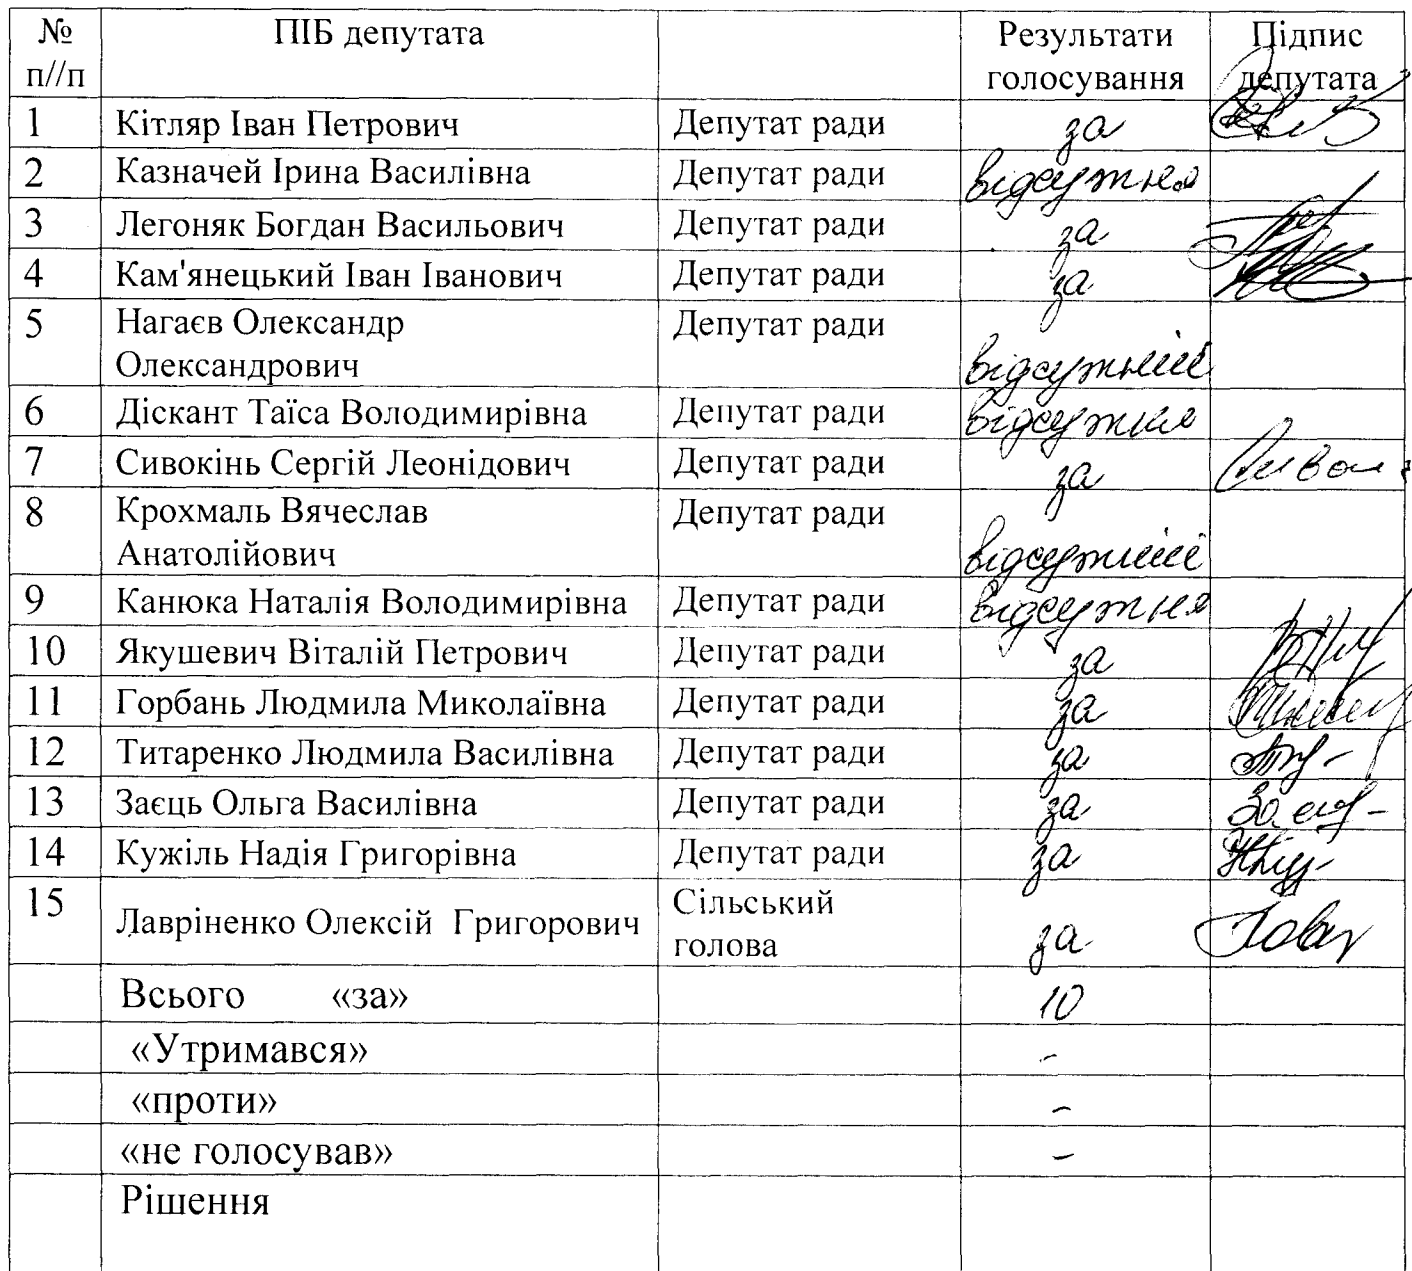 № п//п ПІБ депутата Результати голосування Підпис депутата
1 Кітляр Іван Петрович Депутат ради за
2 Казначей Ірина Василівна Депутат ради відсутня
3 Легоняк Богдан Васильович Депутат ради за
4 Кам'янецький Іван Іванович Депутат ради за
5 Нагаєв Олександр Олександрович Депутат ради відсутній
6 Діскант Таїса Володимирівна Депутат ради відсутня
7 Сивокінь Сергій Леонідович Депутат ради за
8 Крохмаль Вячеслав Анатолійович Депутат ради відсутній
9 Канюка Наталія Володимирівна Депутат ради відсутня
10 Якушевич Віталій Петрович Депутат ради за
11 Горбань Людмила Миколаївна Депутат ради за
12 Титаренко Людмила Василівна Депутат ради за
13 Заєць Ольга Василівна Депутат ради за
14 Кужіль Надія Григорівна Депутат ради за
15 Лавріненко Олексій Григорович Сільський голова за
Всього «за» 10
«Утримався» -
«проти» -
«не голосував» -
Рішення